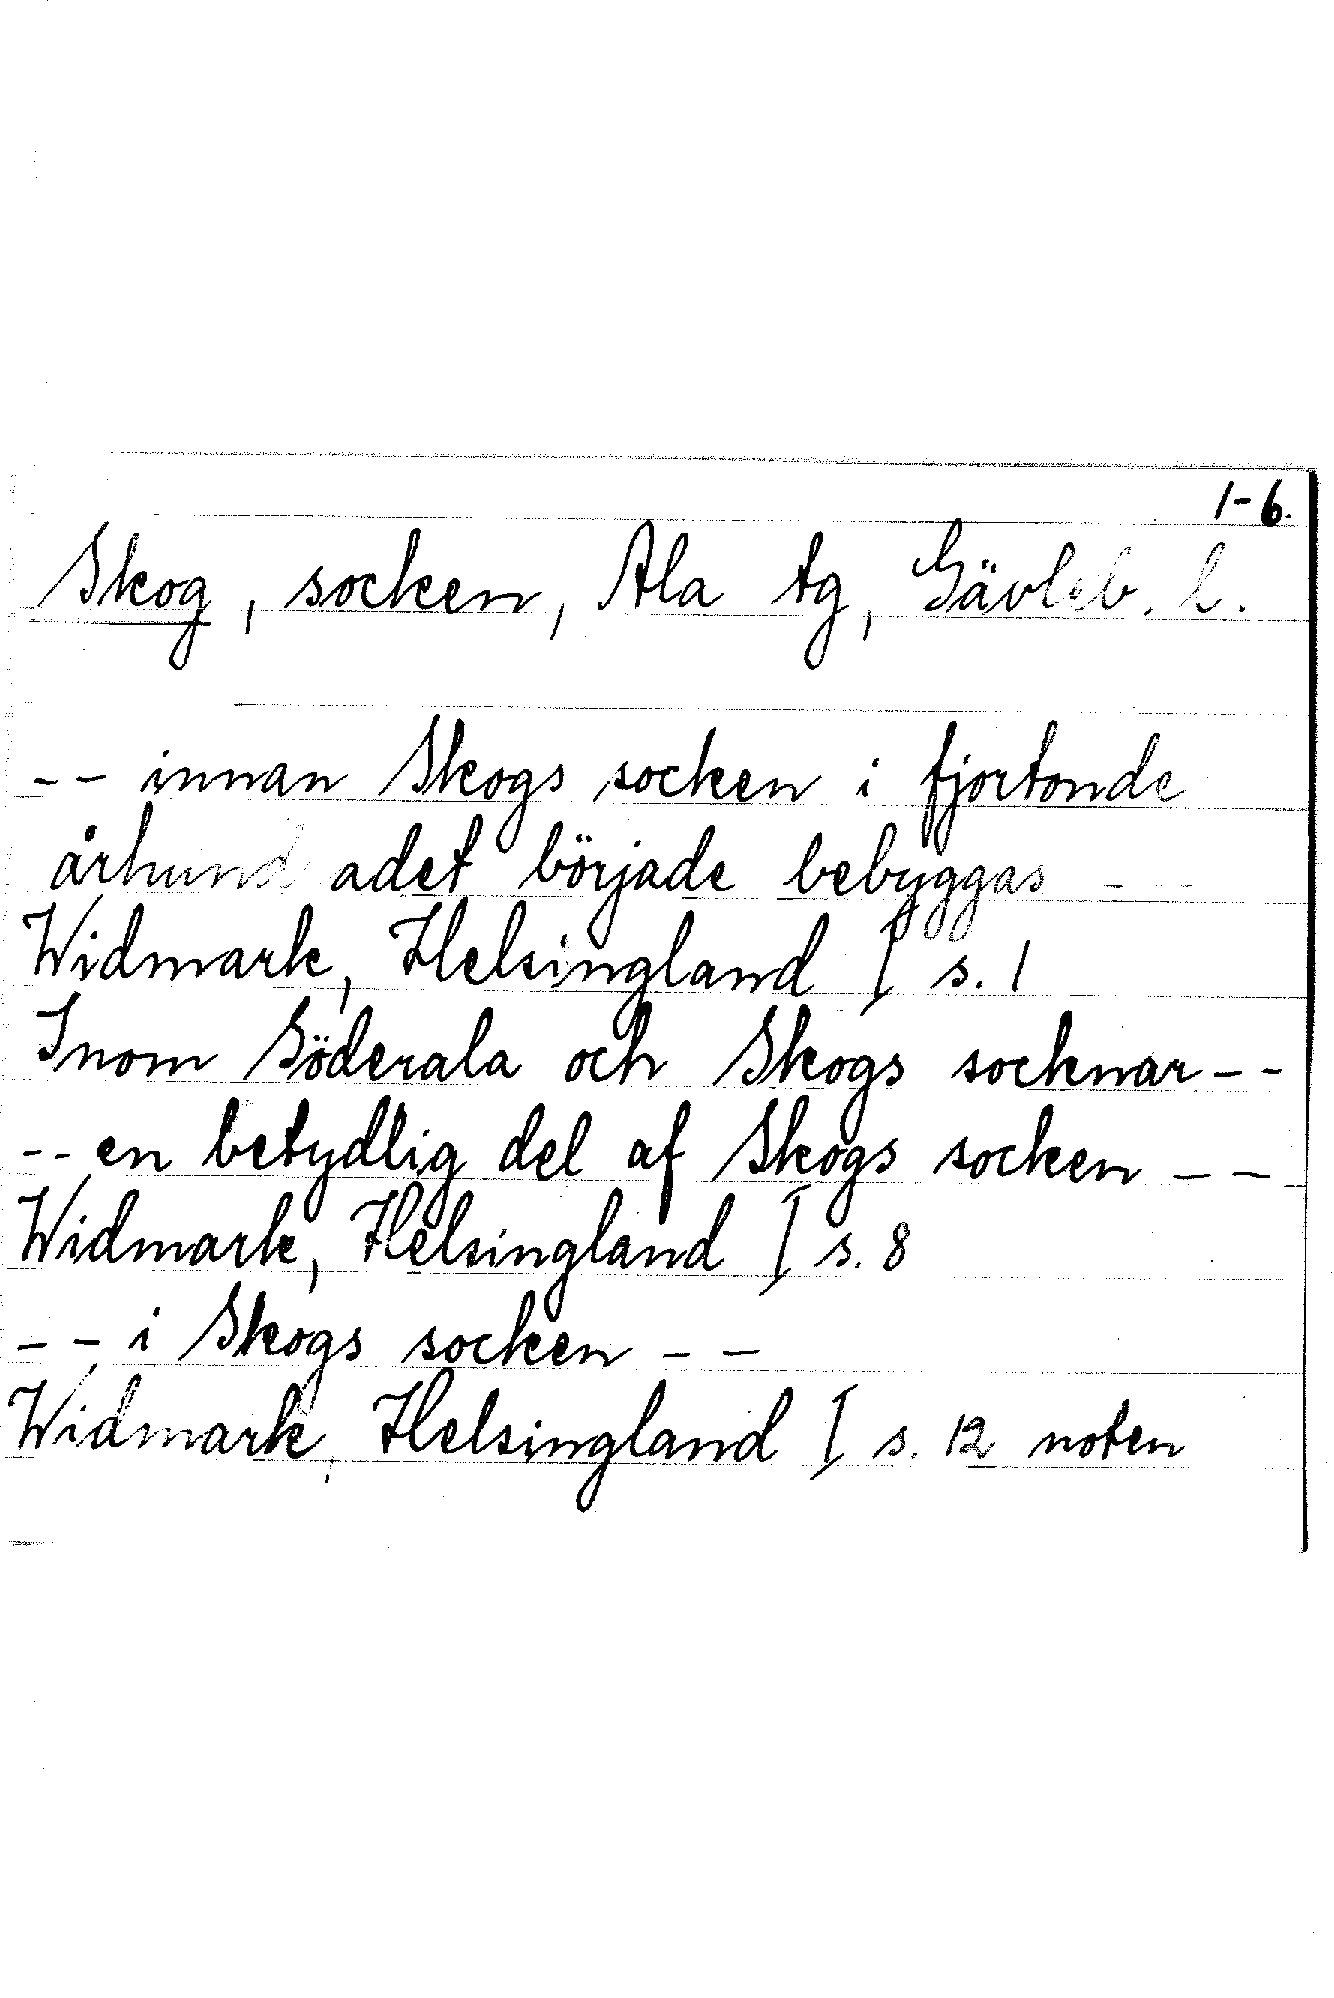 1-6.
Skog, socken, Ala tg, Gävleb. l.
-- innan Skogs socken i fjortonde
århundradet började bebyggas --
Widmark, Helsingland I s. 1
Inom Söderala och Skogs socknar --
-- en betydlig del af Skogs socken --
Widmark, Helsingland I s. 8
-- i Skogs socken --
Widmark, Helsingland I s. 12 noten